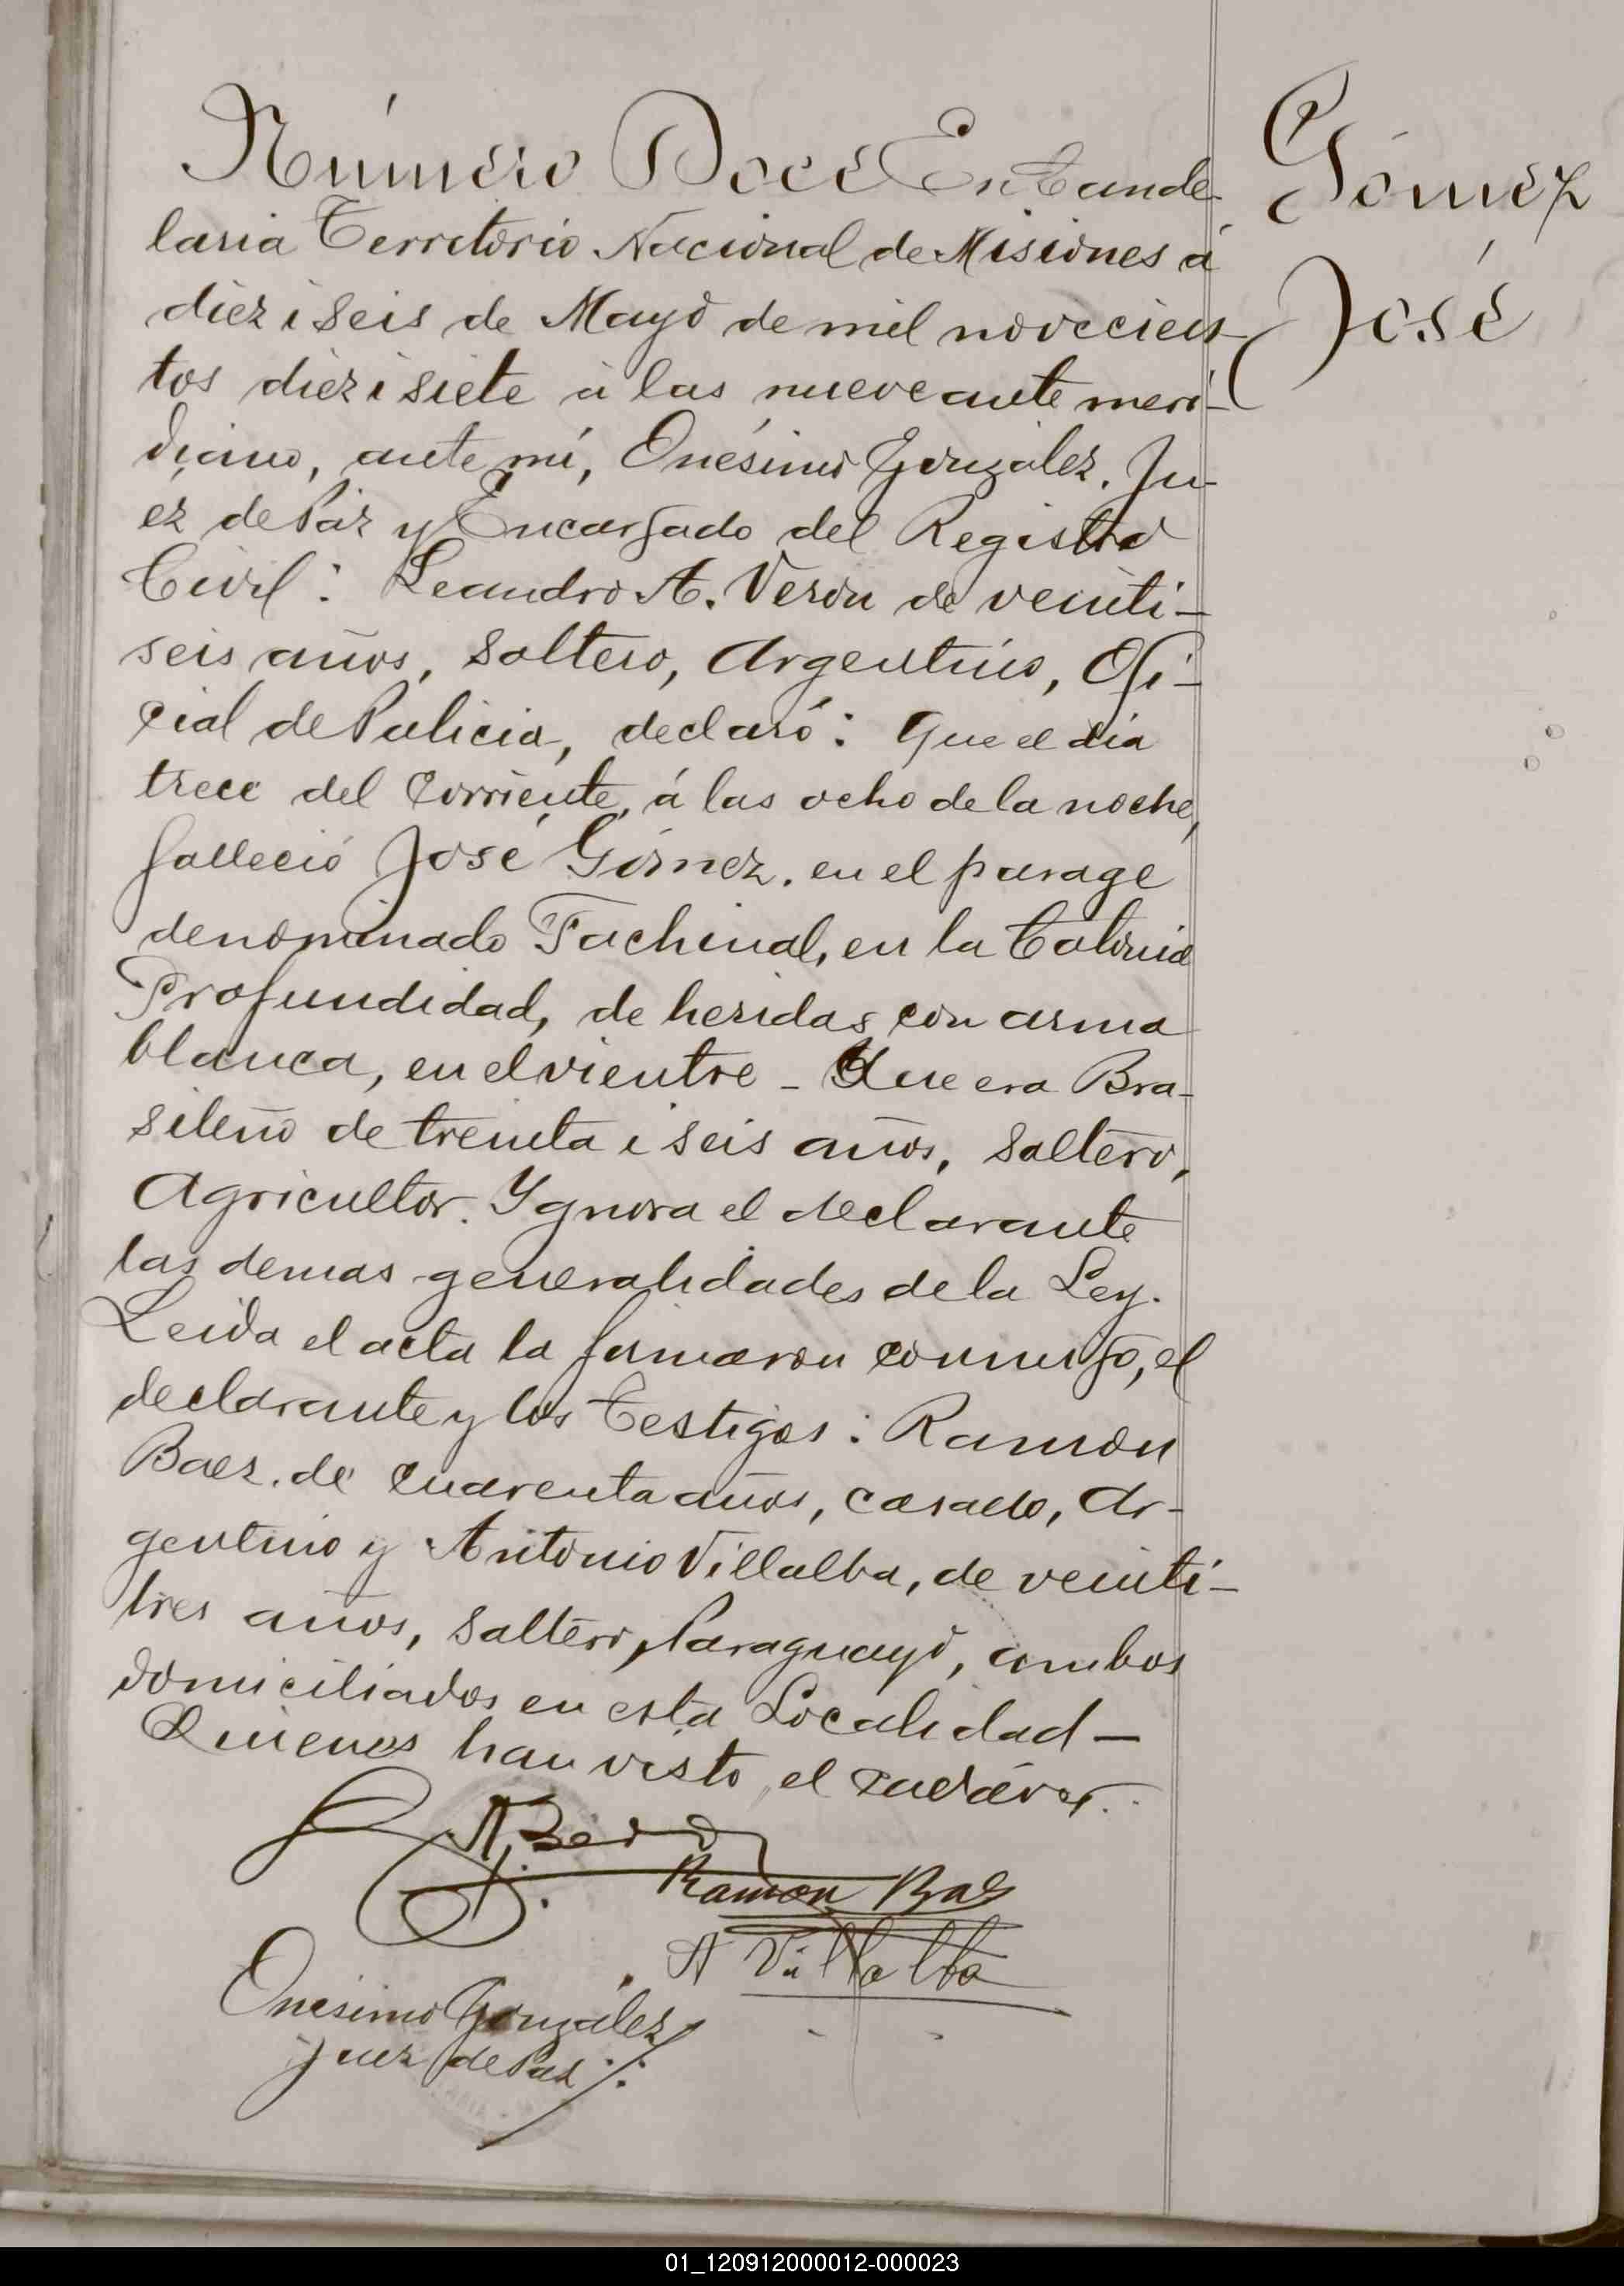 Número Doce En Cande-
laria Territorio Nacional de Misiones á
diez i seis de Mayo de mil novecien-
tos diez i siete á las nueve ante meri-
diano, ante mí, Onésimo González, Ju-
ez de Paz y Encargado del Registro
Civil: Leandro A. Veron de veinti-
seis años, Soltero, Argentino, Ofi-
cial de Policia, declaró: Que el día
trece del corriente, á las ocho de la noche,
falleció José Gómez. en el parage
denominado Fachinal, en la Colonia
Profundidad, de heridas con arma
blanca, en el vientre - Que era Bra-
sileño de treinta i seis años, Soltero,
Agricultor. Ygnora el declarante
las demas generalidades de la Ley.
Leida el acta la firmaron conmigo, el
declarante y los Testigos: Ramon
Baez. de cuarenta años, casado, Ar-
gentino y Antonio Villalba, de veinti-
tres años, Soltero, Paraguayo, ambos
domiciliados en esta Localidad -
Quienes han visto el cadáver.
Gómez
José
Ramon Baez
A Villalba
Onesimo González
Juez de Paz
01_120912000012-000023